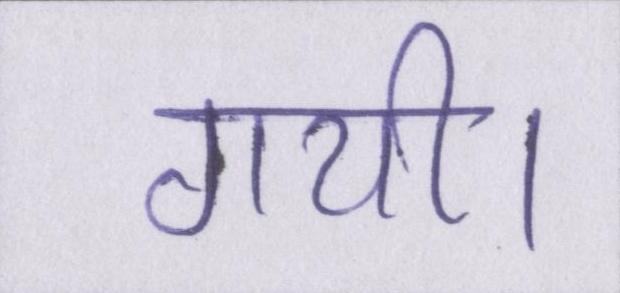 गयी।